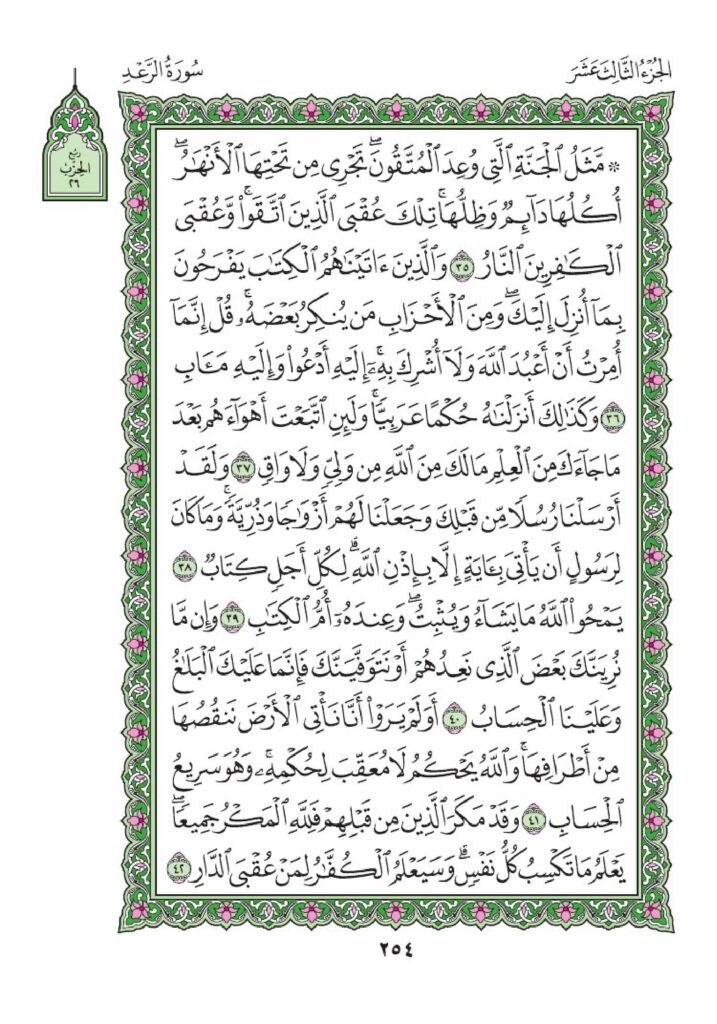 الجُزْءُ الثَّالِثَ عَشَرَ
سُورَةُ الرَّعْدِ
رُبْعُ
الحِزْبِ
٢٦
۞ مَّثَلُ ٱلۡجَنَّةِ ٱلَّتِي وُعِدَ ٱلۡمُتَّقُونَۖ تَجۡرِي مِن تَحۡتِهَا ٱلۡأَنۡهَٰرُۖ
أُكُلُهَا دَآئِمٞ وَظِلُّهَاۚ تِلۡكَ عُقۡبَى ٱلَّذِينَ ٱتَّقَواْۚ وَّعُقۡبَى
ٱلۡكَٰفِرِينَ ٱلنَّارُ ٣٥ وَٱلَّذِينَ ءَاتَيۡنَٰهُمُ ٱلۡكِتَٰبَ يَفۡرَحُونَ
بِمَآ أُنزِلَ إِلَيۡكَۖ وَمِنَ ٱلۡأَحۡزَابِ مَن يُنكِرُ بَعۡضَهُۥۚ قُلۡ إِنَّمَآ
أُمِرۡتُ أَنۡ أَعۡبُدَ ٱللَّهَ وَلَآ أُشۡرِكَ بِهِۦٓۚ إِلَيۡهِ أَدۡعُواْ وَإِلَيۡهِ مَـَٔابِ
٣٦ وَكَذَٰلِكَ أَنزَلۡنَٰهُ حُكۡمًا عَرَبِيّٗاۚ وَلَئِنِ ٱتَّبَعۡتَ أَهۡوَآءَهُم بَعۡدَ
مَا جَآءَكَ مِنَ ٱلۡعِلۡمِ مَا لَكَ مِنَ ٱللَّهِ مِن وَلِيّٖ وَلَا وَاقٖ ٣٧ وَلَقَدۡ
أَرۡسَلۡنَا رُسُلٗا مِّن قَبۡلِكَ وَجَعَلۡنَا لَهُمۡ أَزۡوَٰجٗا وَذُرِّيَّةٗۚ وَمَا كَانَ
لِرَسُولٍ أَن يَأۡتِيَ بِـَٔايَةٍ إِلَّا بِإِذۡنِ ٱللَّهِۗ لِكُلِّ أَجَلٖ كِتَابٞ ٣٨
يَمۡحُواْ ٱللَّهُ مَا يَشَآءُ وَيُثۡبِتُۖ وَعِندَهُۥٓ أُمُّ ٱلۡكِتَٰبِ ٣٩ وَإِن مَّا
نُرِيَنَّكَ بَعۡضَ ٱلَّذِي نَعِدُهُمۡ أَوۡ نَتَوَفَّيَنَّكَ فَإِنَّمَا عَلَيۡكَ ٱلۡبَلَٰغُ
وَعَلَيۡنَا ٱلۡحِسَابُ ٤٠ أَوَلَمۡ يَرَوۡاْ أَنَّا نَأۡتِي ٱلۡأَرۡضَ نَنقُصُهَا
مِنۡ أَطۡرَافِهَاۚ وَٱللَّهُ يَحۡكُمُ لَا مُعَقِّبَ لِحُكۡمِهِۦۚ وَهُوَ سَرِيعُ
ٱلۡحِسَابِ ٤١ وَقَدۡ مَكَرَ ٱلَّذِينَ مِن قَبۡلِهِمۡ فَلِلَّهِ ٱلۡمَكۡرُ جَمِيعٗاۖ
يَعۡلَمُ مَا تَكۡسِبُ كُلُّ نَفۡسٖۗ وَسَيَعۡلَمُ ٱلۡكُفَّٰرُ لِمَنۡ عُقۡبَى ٱلدَّارِ ٤٢
٢٥٤